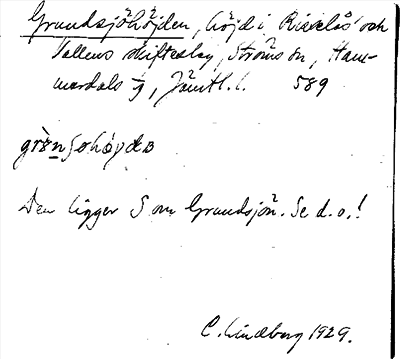 Grundsjöhöjden, höjd i Risselås och
Vallens skifteslag, Ströms sn, Ham-
merdals tg, Jämtl. l. 589
Den ligger S om Grundsjön. Se d. o.!
C. Lindberg 1929.